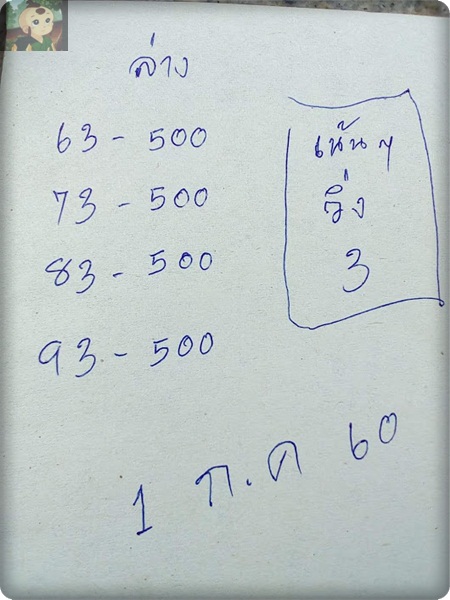 ล่าง
63 - 500
73 - 500
83 - 500
93 - 500
เน้นๆ
วิ่ง
3
1 ก.ค 60